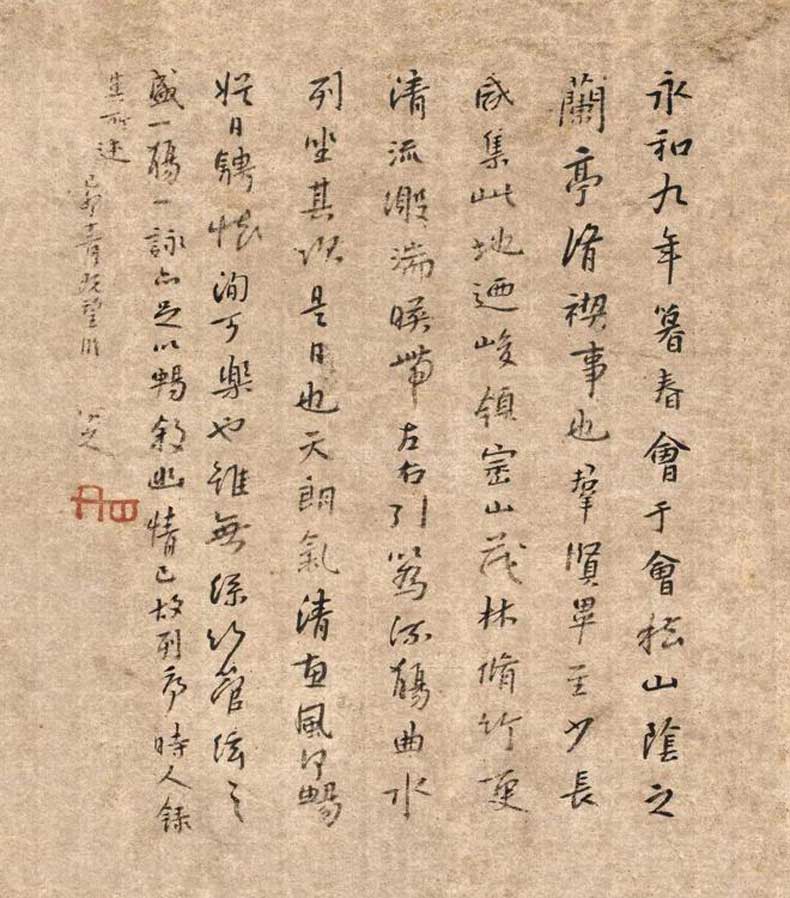 永和九年暮春會于會嵇山陰之
蘭亭脩禊事也羣賢畢至少長
咸集此地迺峻領崇山茂林脩竹更
清流激湍暎帶左右引爲流觴曲水
列坐其次是日也天朗氣清惠風和暢
娛目騁懷洵可樂也雖無絲竹管弦之
盛一觴一詠亦足以暢敘幽情已故列序時人錄
其所述 己卯 既望 八大